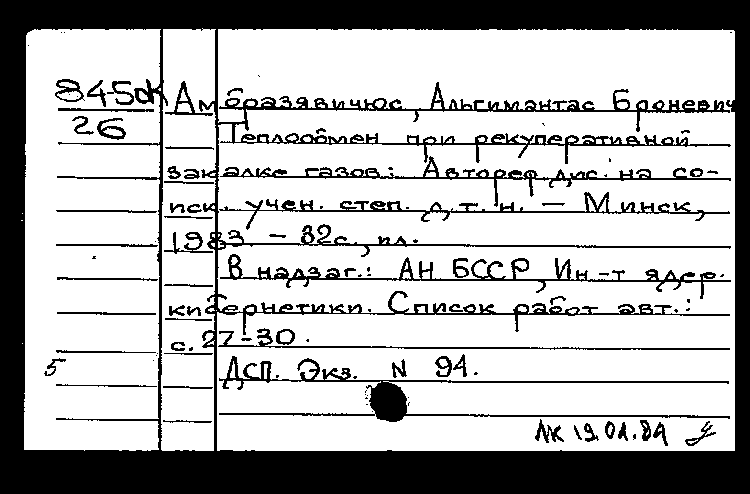 84-5дк
26
Амбразявичюс, Альгимантас Броневич
Теплообмен при рекуперативной
закалке газов: Автореф. дис. на со-
иск. учен. степ. д.т.н. – Минск,
1983. – 32с., ил.
В надзаг.: АН БССР, Ин-т ядер.
кибернетики. Список работ авт.:
с. 27-30.
5
ДСП. Экз. N 94.